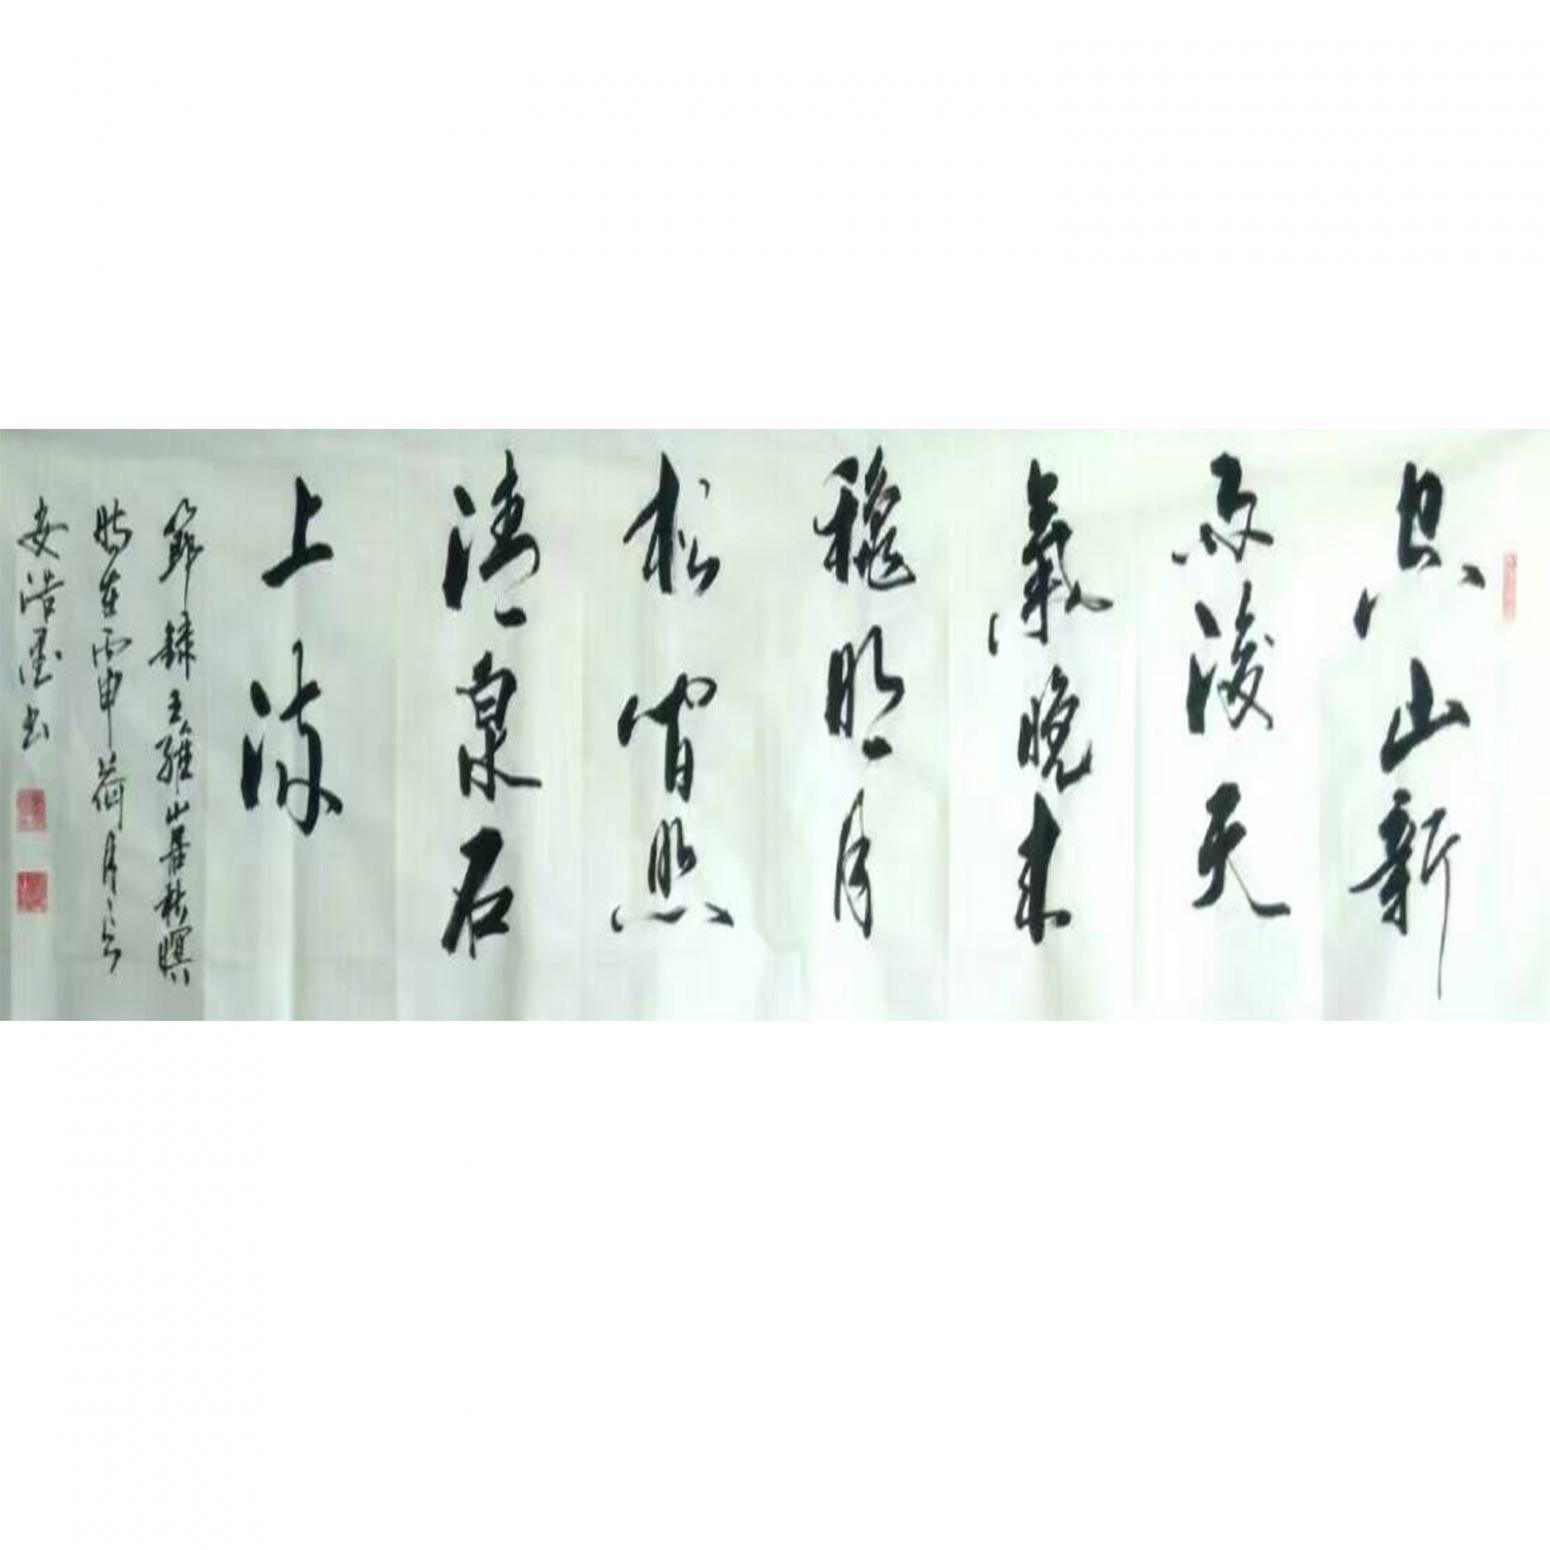 空山新
雨後天
氣晚来
穐明月
松間照
清泉石
上流
節録王維山居秋暝
時在丙申荷月
安浩墨书